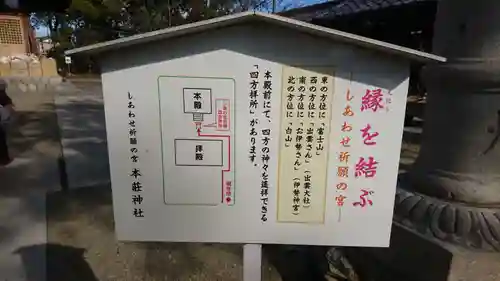 縁を結ぶ
しあわせ祈願の宮
東の方位に「富士山」
西の方位に「出雲さん」(出雲大社)
南の方位に「お伊勢さん」(伊勢神宮)
北の方位に「白山」
本殿前にて、四方の神々を遙拝できる
「四方拝所」があります。
本殿
拝殿
しあわせ祈願の宮 本荘神社